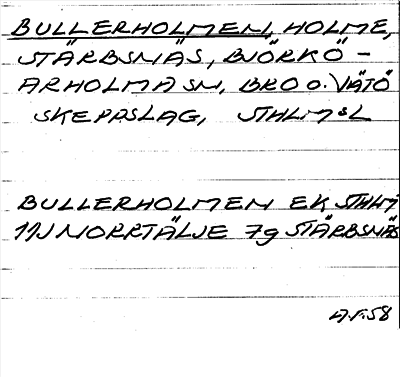 BULLERHOLMEN, HOLME,
STÄRBSNÄS, BJÖRKÖ -
ARHOLMA SN, BRO O. VÄTÖ
SKEPPSLAG, STHLMSL
BULLERHOLMEN EK STHLM
11J NORRTÄLJE 7g STÄRBSNÄS
A.F.58